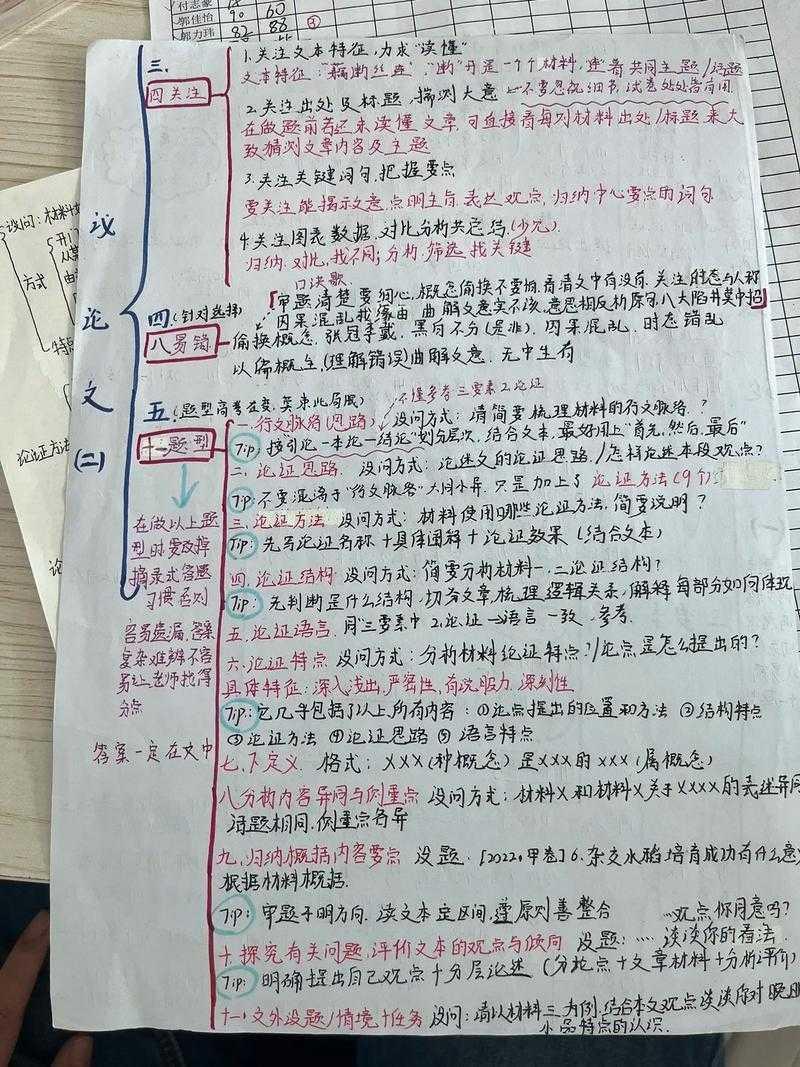 付志豪
郭佳怡 90 60
郭力玮 82 88
议论文(二)
三.
四关注
1.关注文本特征,力求"读懂"
文本特征:"藕断丝连"."断"开是一个个材料,连着共同主题/话题
2.关注出处及标题,揣测大意 不要忽视细节,试卷处处皆有用
在做题前若还未读懂文章,可直接看每则材料出处/标题来大
致猜测文章内容及主题
3.关注关键词句,把握要点
要关注能揭示文意,点明主旨,表达观点,归纳中心要点的词句
4.关注图表数据,对比分析共它结(少见)
归纳,对比,找不同;分析,筛选,找关键
口决歌
「审题清楚要细心,概念偷换不要怕,看清文中有没有,关注时态与人称
因果混乱找缘由,曲解文意实不该,意思相反析原句,八大陷井莫中招」
四.(针对选择)
八易错
偷换概念,张冠李戴,黑白不分(是非),因果混乱,时态错乱
以偏概全,(理解错误)曲解文意,无中生有
五.(题型高考在变,莫束此局限)
十一题型
不懂参考三要素2.论证
一.行文脉络(思路) 设问方式:请简要梳理材料的行文脉络.?
Tip:按引论一本论一结论"划分层次,结合文本,最好用上"首先,然后,最后"
二.论证思路. 设问方式:论述文的论证思路/怎样论述本段观点?
Tip:不要混淆于"行文脉络"大同小异.只是加上了 论证方法(9个)
三.论证方法 设问方式:材料使用哪些论证方法,简要说明?
Tip:先写论证名称+具体阐释+论证效果(结合文本)
四.论证结构 设问方式:简要分析材料一,二论证结构?
Tip:先判断是什么结构,切分文章,梳理逻辑关系,解释每部分如何体现
五.论证语言 同"三要素中2.论证→语言一致,参考.
六.论证特点 设问方式:分析材料论证特点?/论点是怎么提出的?
具体特征:深入浅出,严密性,有说服力,深刻性
Tip:它几乎包括了以上所有内容:①论点提出的位置和方法 ②结构特点
③论证方法 ④论证思路 ⑤语言特点
七.下定义. 格式:XXX(种概念)是XXX的XXX(属概念)
八.分析内容异同与侧重点 设问方式:材料X和材料X关于XXXX的表述异同
话题相同,侧重点各异
九.归纳概括内容要点 设题.[2022,甲卷]6.杂交水稻培育成功有什么意
根据材料概括.
Tip:审题干明方向,读文本定区间,遵原则善整合 …观点你同意吗?
十.探究有关问题,评价文本的观点与倾向 设题:…谈谈你的看法.
Tip:明确提出自己观点+分层论述(分论点+文章材料+分析评价)
十一.文外设题/情境+任务 设问:请以材料三为例,结合本文观点谈谈你对晚明
小品特点的认识.
在做以上题
型时要改掉
摘录式答题
习惯否则
容易遗漏,答案
复杂难辨不容
易让老师找得
分点
答案一定在文中
设问:材料
方式
特点
论证方法